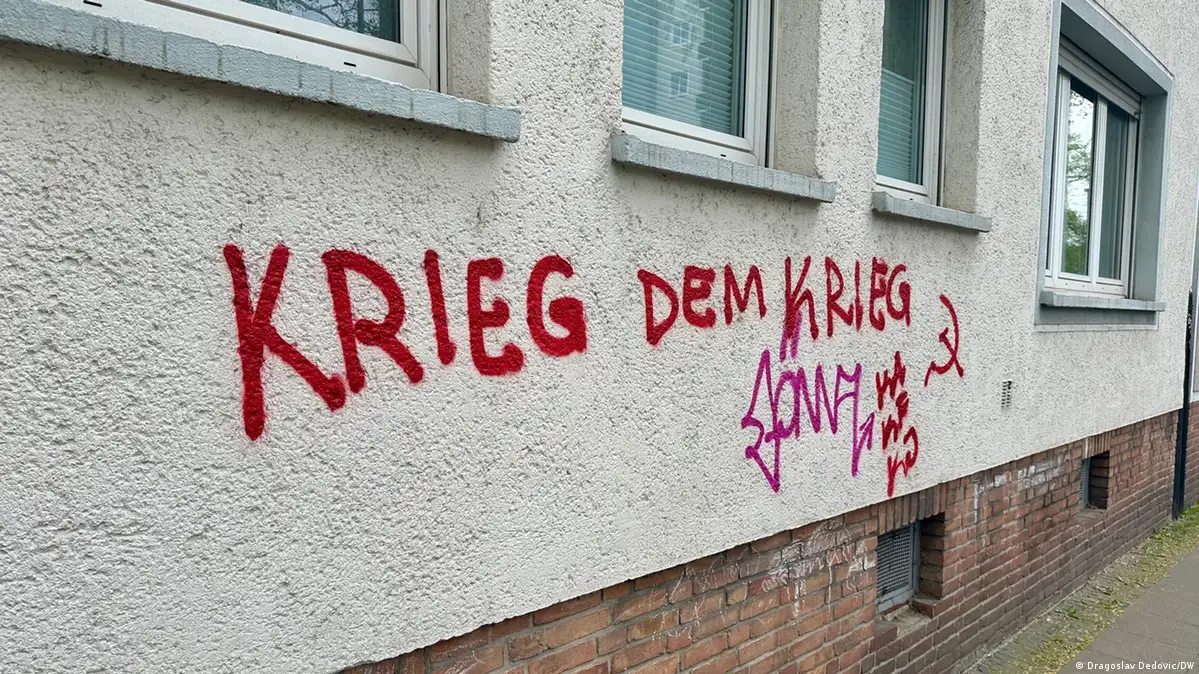 KRIEG DEM KRIEG
© Dragoslav Dedovic/DW